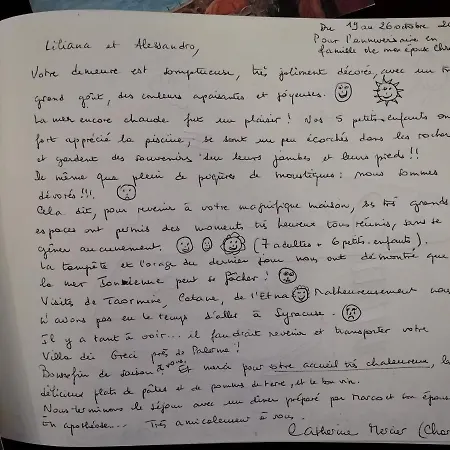 Du 19 au 26 octobre 20
Pour l'anniversaire en
famille de mon époux Chr
Liliana et Alessandro,
Votre demeure est somptueuse, très joliment décorée, avec un tr
grand goût, des couleurs apaisantes et joyeuses.
La mer encore chaude fut un plaisir ! Nos 5 petits-enfants on
fort apprécié la piscine, se sont un peu écorchés dans les rocher
et gardent des souvenirs sur leurs jambes et leurs pieds !!
De même que plein de piqûres de moustiques : nous sommes
dévorés !!!.
Cela dit, pour revenir à votre magnifique maison, ses très grands
espaces ont permis des moments très heureux tous réunis, sans se
gêner aucunement. (7 adultes + 6 petits-enfants).
La tempête et l'orage du dernier jour nous ont démontré que
la mer Ionienne peut se fâcher !
Visites de Taormine, Catane, de l'Etna Malheureusement nous
n'avons pas eu le temps d'aller à Syracuse.
Il y a tant à voir... il faudrait revenir et transporter votre
Villa dei Greci près de Palerme !
Bonne fin de saison à vous et merci pour votre accueil très chaleureux, le
délicieux plats de pâtes et de pommes de terre, et le bon vin.
Nous terminons le séjour avec un diner préparé par Marco et son épouse
En apothéose... Très amicalement à vous.
Catherine Mercier (Char